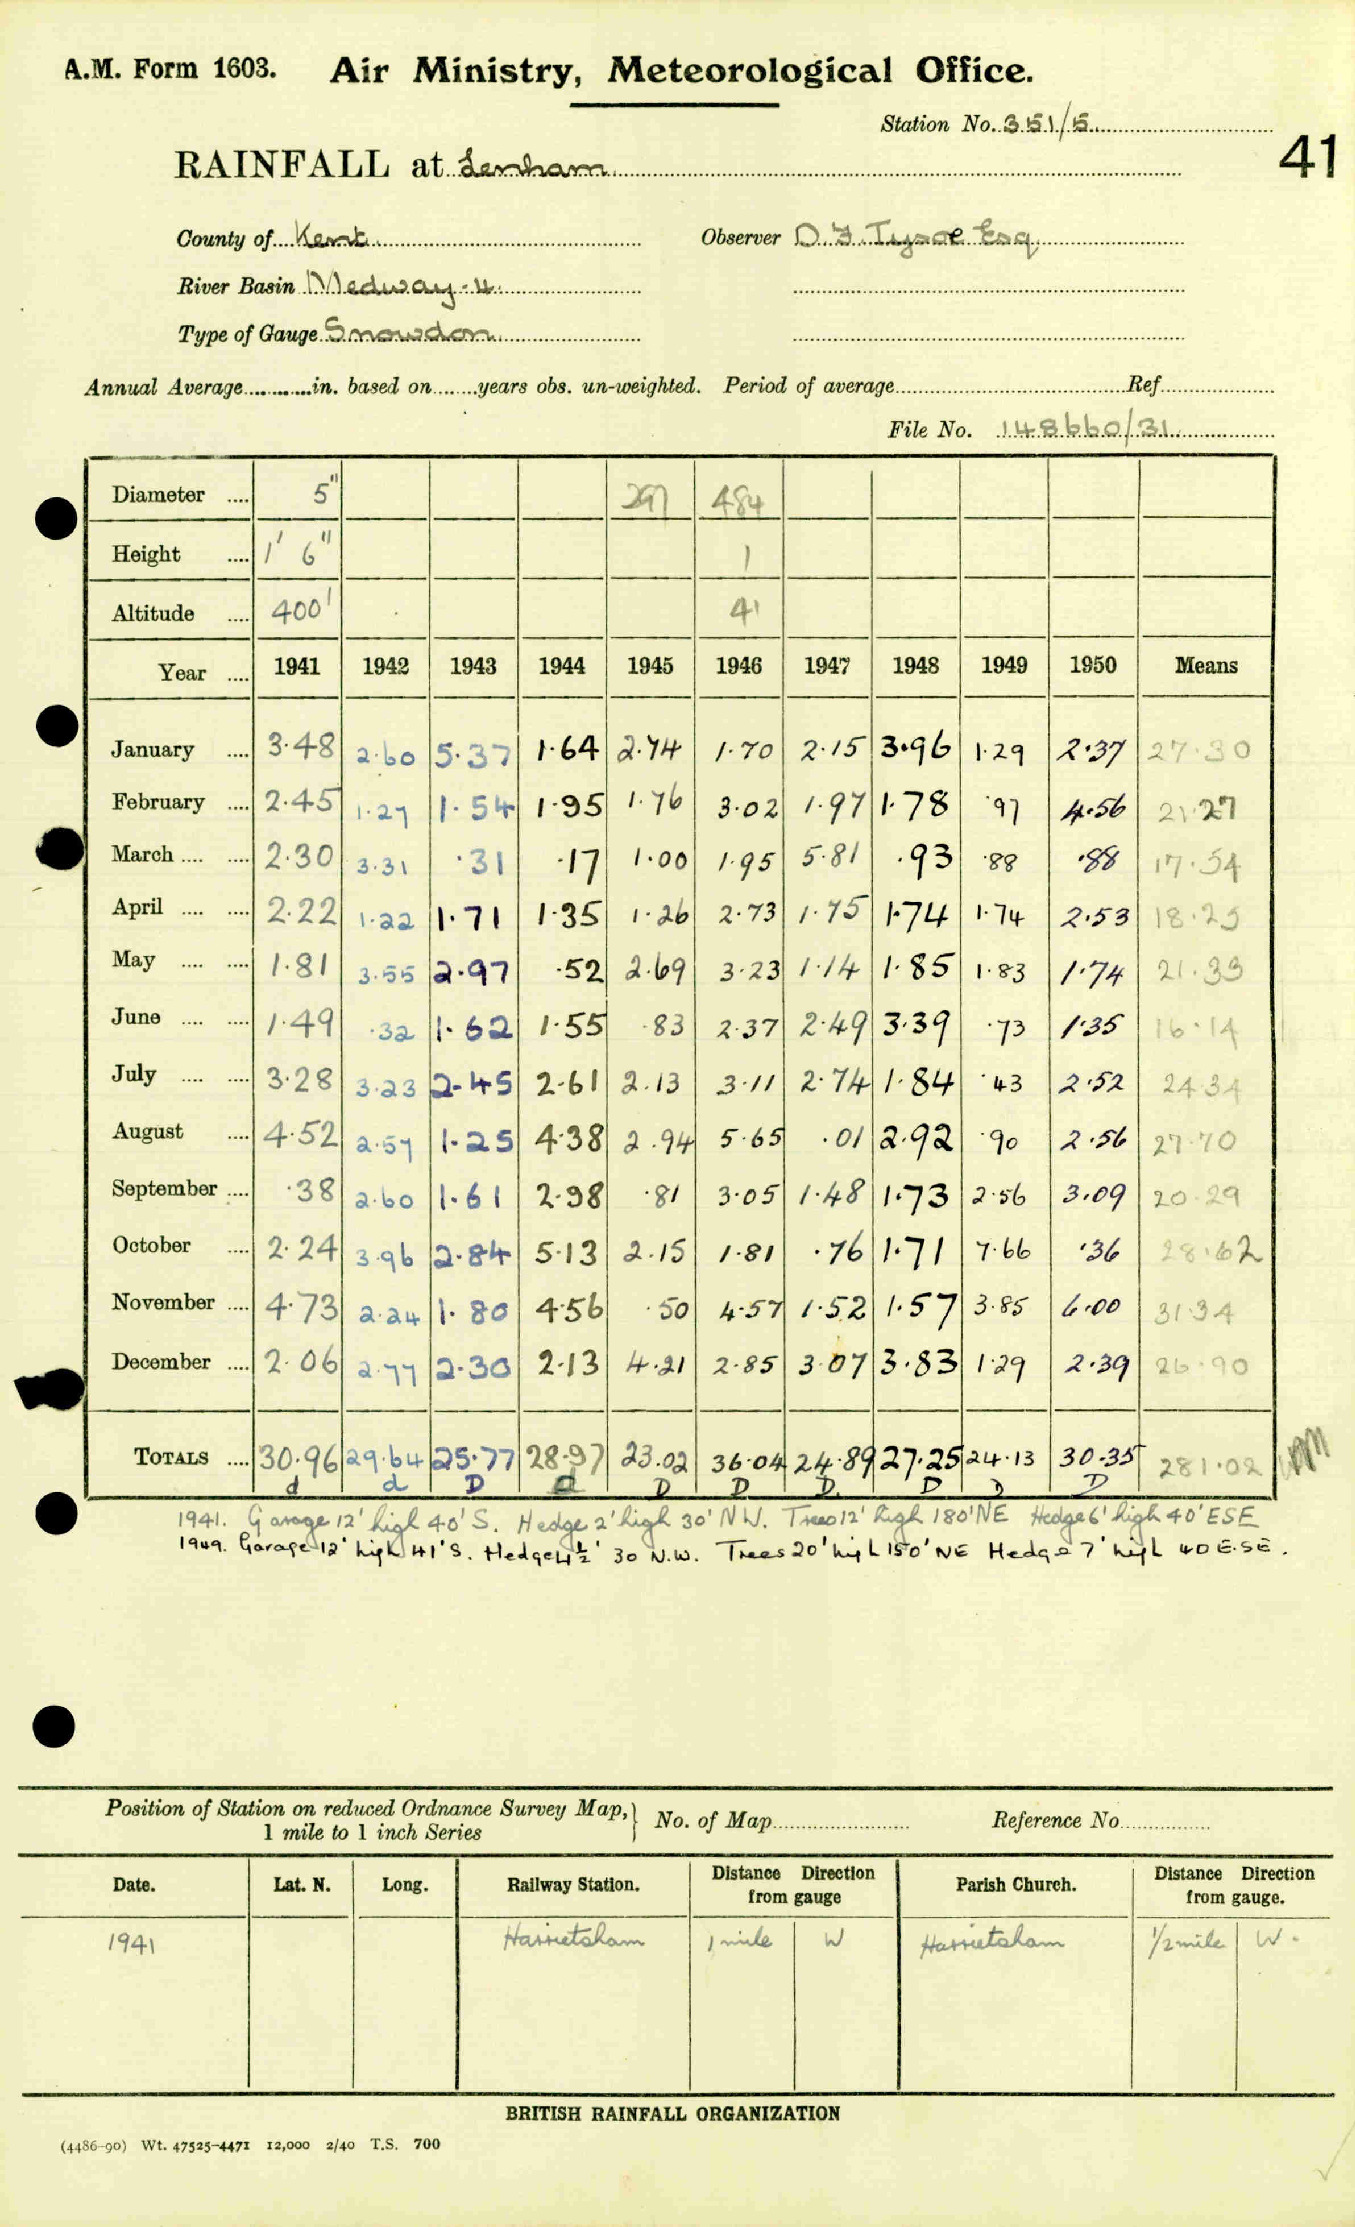 A.M. Form 1603. Air Ministry, Meteorological Office.
Station No. 351/5
41
RAINFALL at Lenham
County of Kent Observer D. F. Tysoe Esq.
River Basin Medway-4
Type of Gauge Snowdon
Annual Average in. based on years obs. un-weighted. Period of average Ref.
File No. 148660/31
Diameter .... 5" 297 484
Height .... 1' 6" 1
Altitude .... 400' 41
Year .... 1941 1942 1943 1944 1945 1946 1947 1948 1949 1950 Means
January .... 3.48 2.60 5.37 1.64 2.74 1.70 2.15 3.96 1.29 2.37 27.30
February .... 2.45 1.27 1.54 1.95 1.76 3.02 1.97 1.78 .97 4.56 21.27
March .... .... 2.30 3.31 .31 .17 1.00 1.95 5.81 .93 .88 .88 17.54
April .... .... 2.22 1.22 1.71 1.35 1.26 2.73 1.75 1.74 1.74 2.53 18.25
May .... .... 1.81 3.55 2.97 .52 2.69 3.23 1.14 1.85 1.83 1.74 21.33
June .... .... 1.49 .32 1.62 1.55 .83 2.37 2.49 3.39 .73 1.35 16.14
July .... .... 3.28 3.23 2.45 2.61 2.13 3.11 2.74 1.84 .43 2.52 24.34
August .... 4.52 2.57 1.25 4.38 2.94 5.65 .01 2.92 .90 2.56 27.70
September .... .38 2.60 1.61 2.98 .81 3.05 1.48 1.73 2.56 3.09 20.29
October .... 2.24 3.96 2.84 5.13 2.15 1.81 .76 1.71 7.66 .36 28.62
November .... 4.73 2.24 1.80 4.56 .50 4.57 1.52 1.57 3.85 6.00 31.34
December .... 2.06 2.77 2.30 2.13 4.21 2.85 3.07 3.83 1.29 2.39 26.90
TOTALS .... 30.96 29.64 25.77 28.97 23.02 36.04 24.89 27.25 24.13 30.35 281.02
d d D d D D D D D D
1941. Garage 12' high 40' S. Hedge 2' high 30' NW. Trees 12' high 180' NE Hedge 6' high 40' ESE
1949. Garage 12' high 41' S. Hedge 4½' 30 N.W. Trees 20' high 150' NE Hedge 7' high 40 E.SE.
Position of Station on reduced Ordnance Survey Map, No. of Map Reference No.
1 mile to 1 inch Series
Date. Lat. N. Long. Railway Station. Distance Direction from gauge Parish Church. Distance Direction from gauge.
1941 Harrietsham 1 mile W Harrietsham 1/2 mile W.
BRITISH RAINFALL ORGANIZATION
(4486-90) Wt. 47525-4471 12,000 2/40 T.S. 700